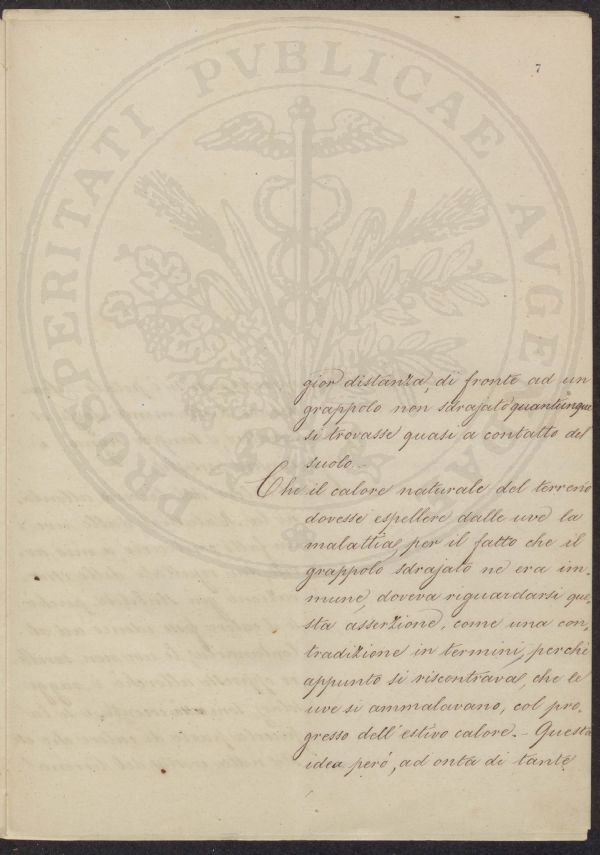 7
PROSPERITATI PVBLICAE AVGENDA
gior distanza, di fronte ad un
grappolo non sdrajato quantunque
si trovasse quasi a contatto del
suolo. –
Che il calore naturale del terreno
dovesse espellere dalle uve la
malattia, per il fatto che il
grappolo sdrajato ne era im-
mune, doveva riguardarsi que-
sta asserzione, come una con-
tradizione in termini, perchè
appunto si riscontrava, che le
uve si ammalavano, col pro-
gresso dell'estivo calore. – Questa
idea però, ad onta di tante